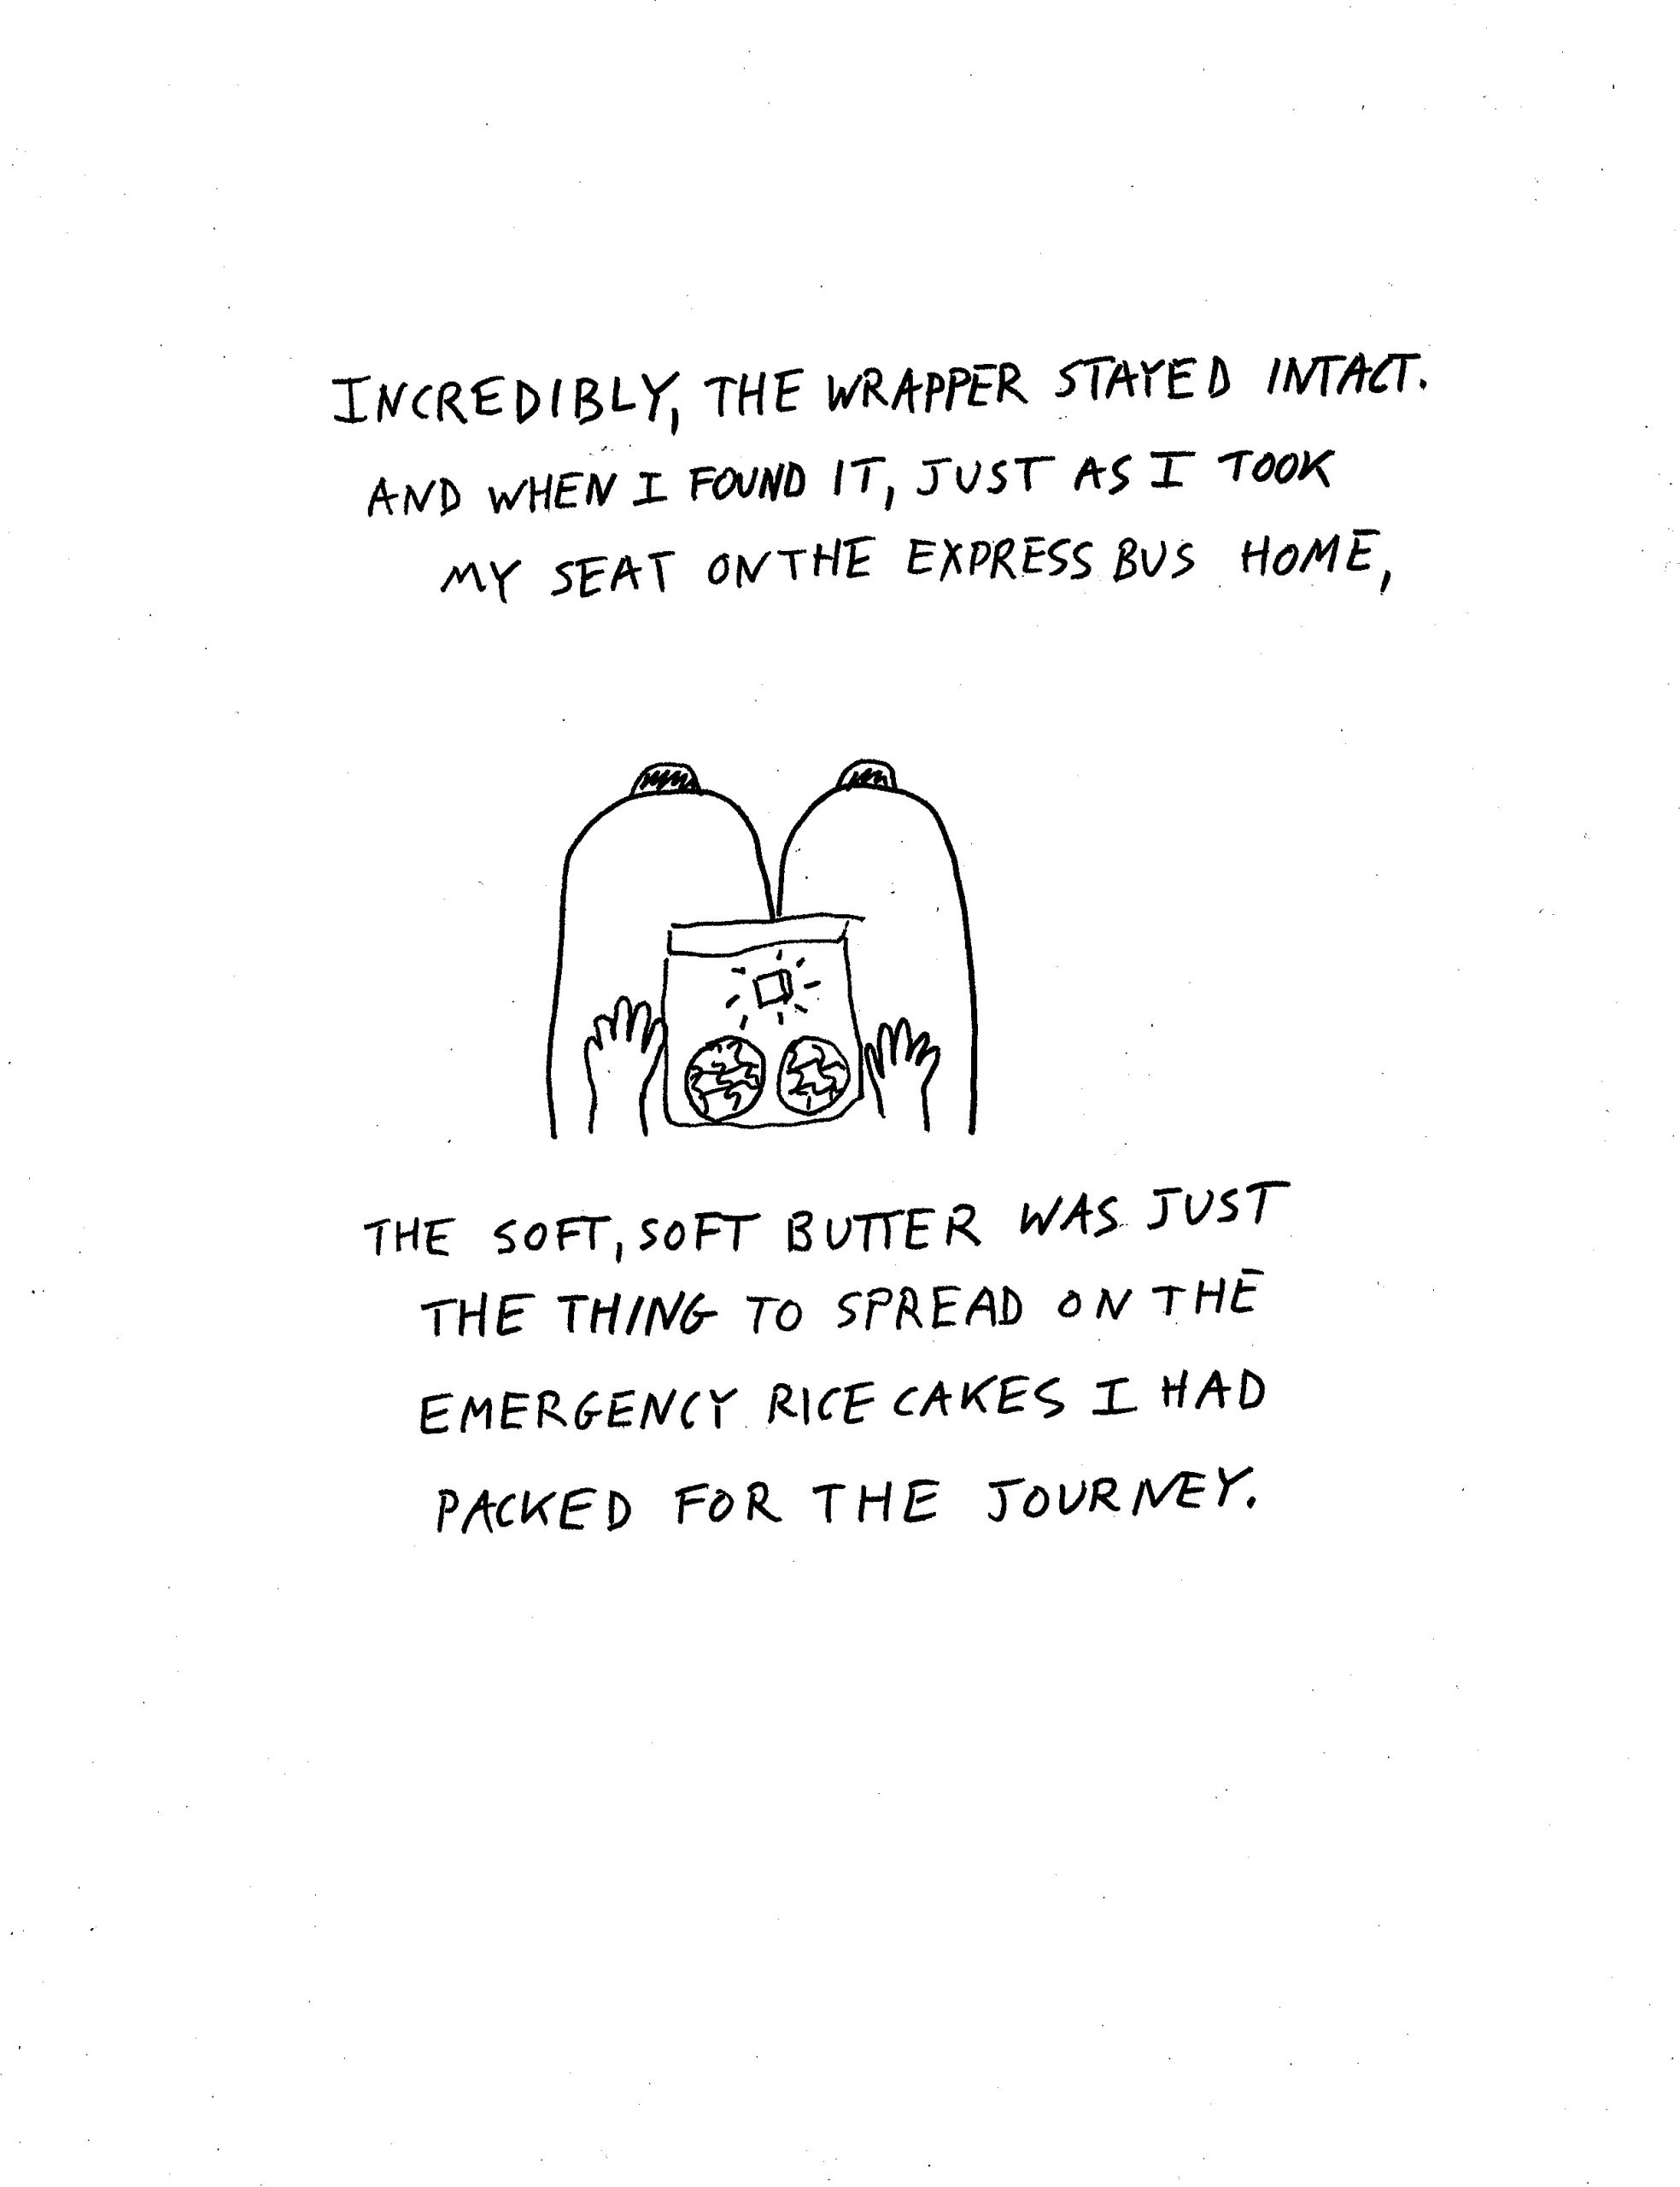 INCREDIBLY, THE WRAPPER STAYED INTACT.
AND WHEN I FOUND IT, JUST AS I TOOK
MY SEAT ON THE EXPRESS BUS HOME,
THE SOFT, SOFT BUTTER WAS JUST
THE THING TO SPREAD ON THE
EMERGENCY RICE CAKES I HAD
PACKED FOR THE JOURNEY.